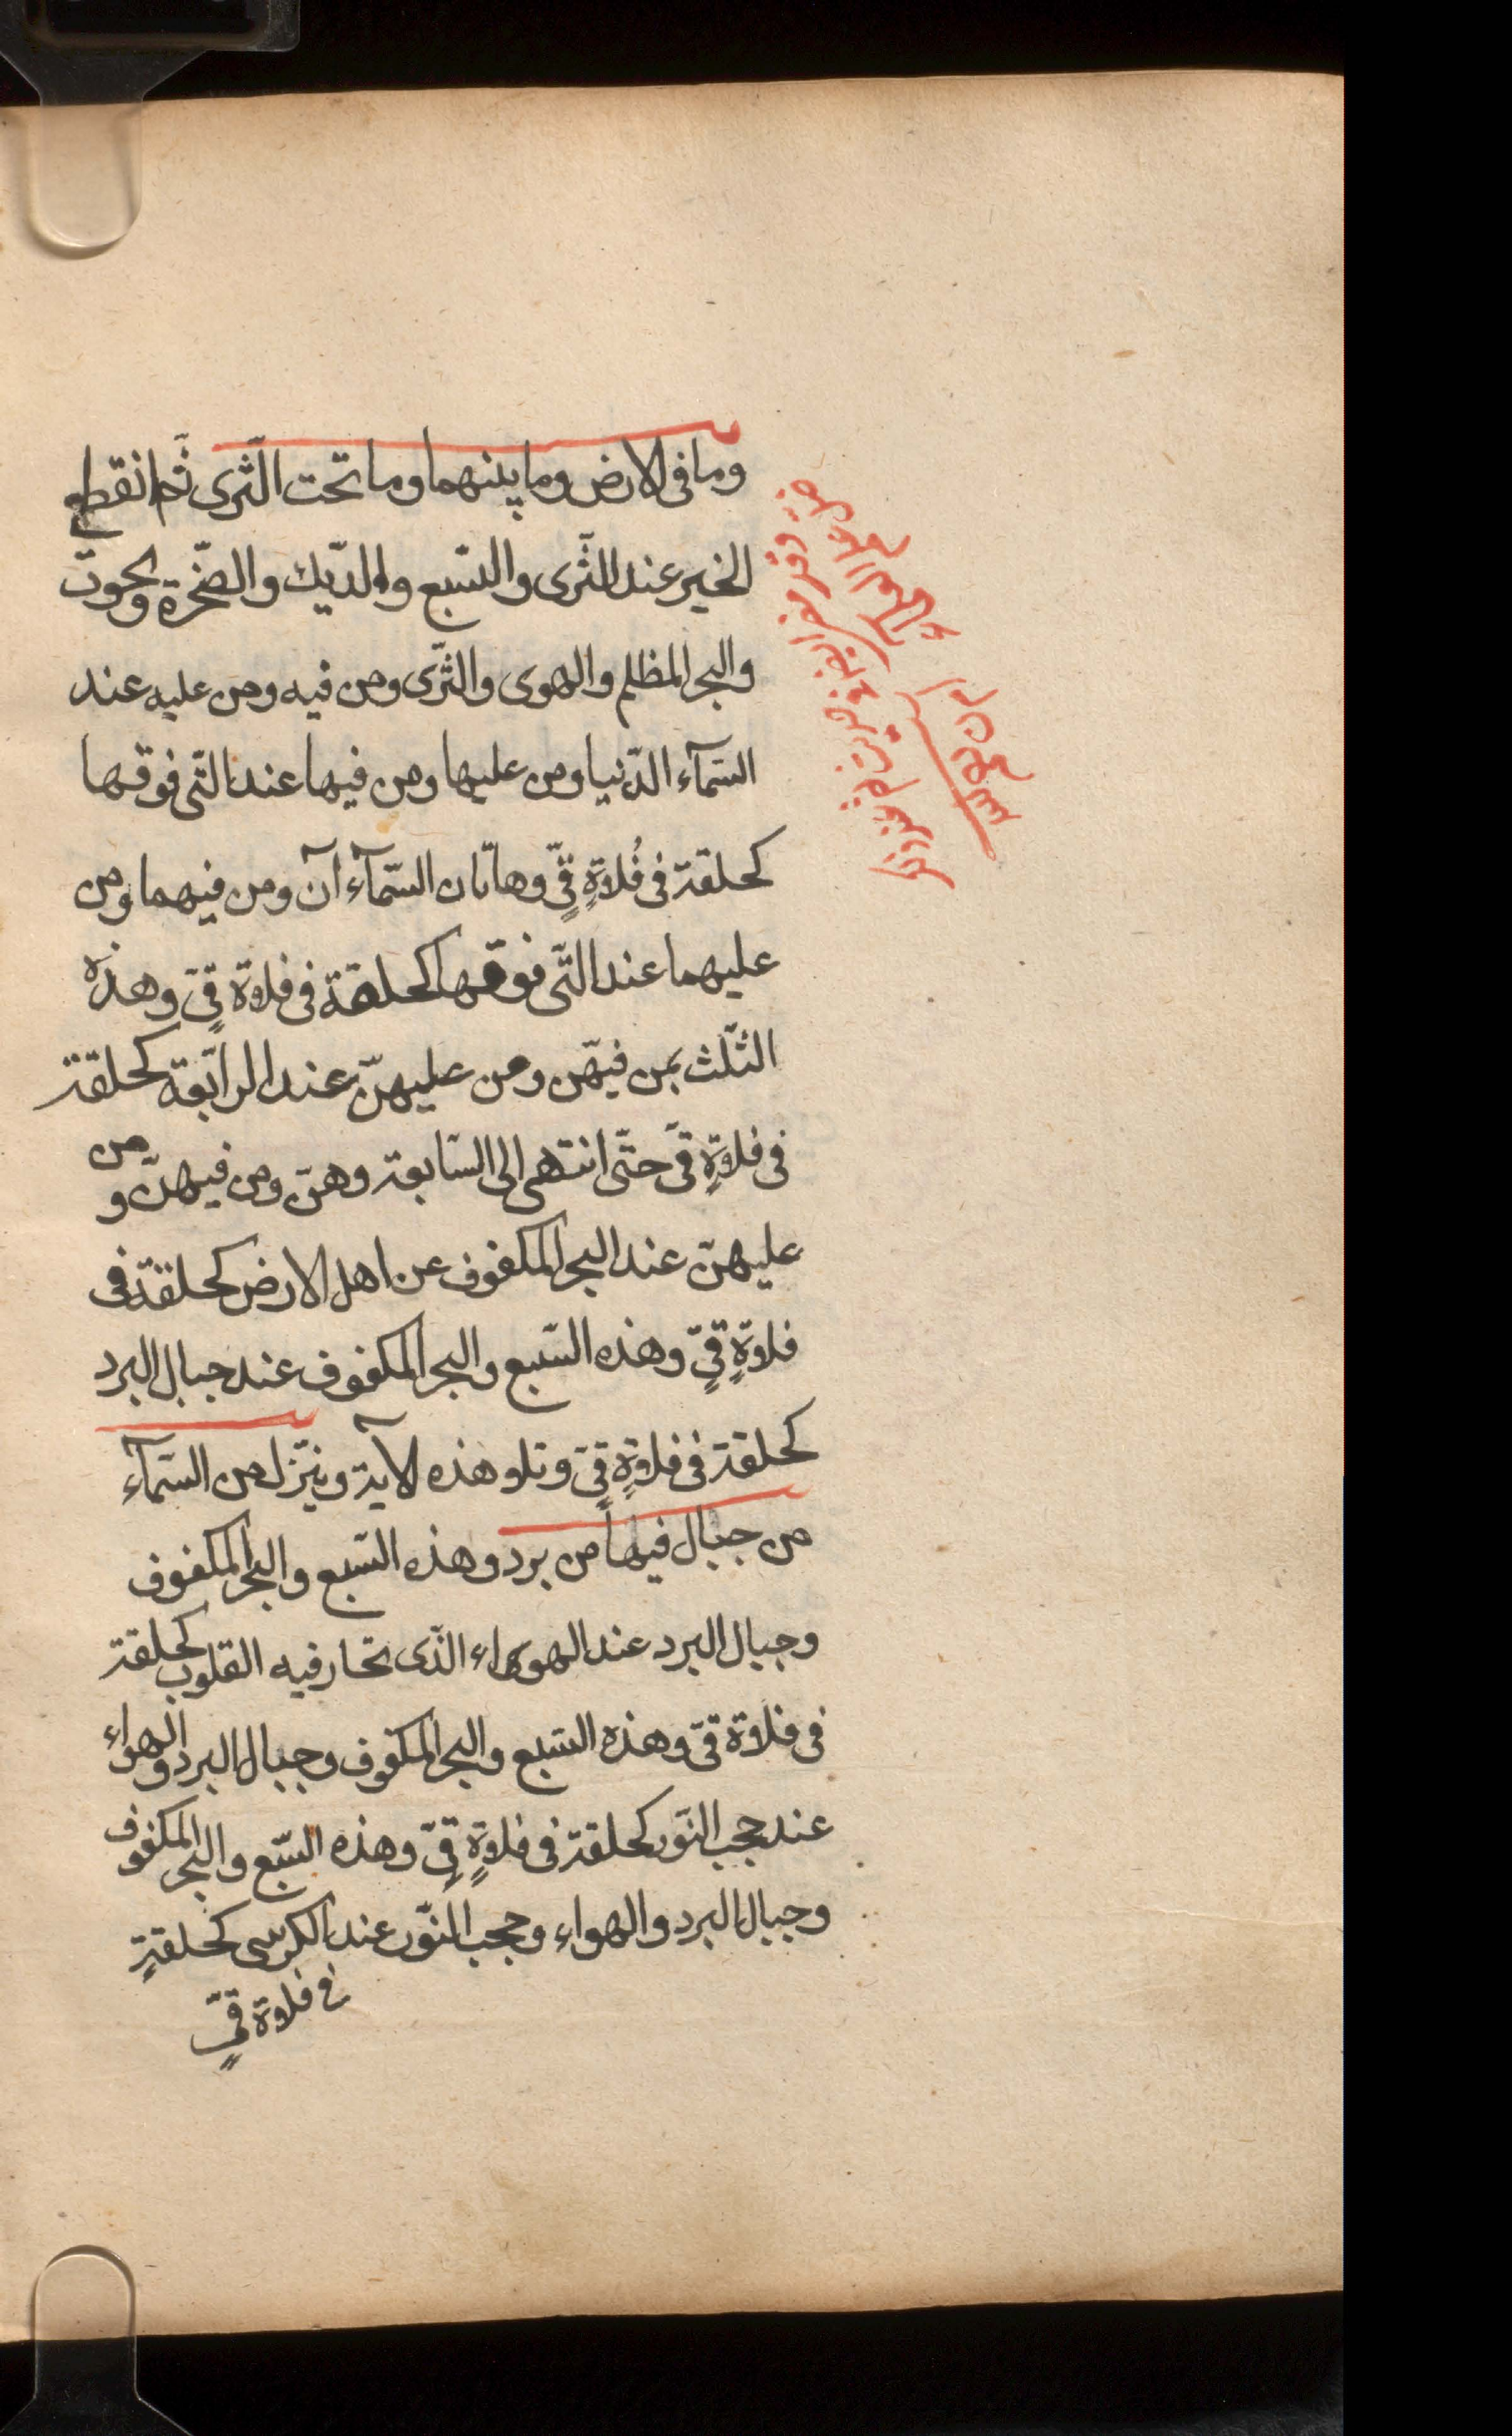 وما فى الارض وما بينهما وما تحت الثّرى ثمّ انقطع
الخبر عند الثّرى والسّبع والدّيك والصّخرة والحوت
والبحر المظلم والهوى والثّرى ومن فيه ومن عليه عند
السّمآء الدّنيا ومن عليها ومن فيها عند الّتى فوقها
كحلقة فى فُلاةٍ قىٍّ وهاتان السّمآء آن ومن فيهما ومن
عليهما عند الّتى فوقها كحلقة فى فلاة قىٍّ وهذه
الثّلث بمن فيهّن ومن عليهنّ عند الرّابعة كحلقة
فى فلاةٍ قىّ حتّى انتهى الى السّابعة وهنّ ومن فيهنّ و من
عليهنّ عند البحر المكفوف عن اهل الارض كحلقة فى
فلاةٍ قىٍّ وهذه السّبع والبحر المكفوف عند جبال البرد
كحلقة فى فلاةٍ قىٍّ وتلو هذه الآية وينزّل من السّمآء
من جبال فيها من برد وهذه السّبع والبحر المكفوف
وجبال البرد عند الهواء الّذى تحار فيه القلوب كحلقة
فى فلاة قىّ وهذه السّبع والبحر المكفوف وجبال البرد والهواء
عند حجب النّور كحلقة فى فلاةٍ قىٍّ وهذه السّبع والبحر المكفوف
وجبال البرد والهواء وحجب النّور عند الكرسّى كحلقةٍ
فى فلاة قىٍّ